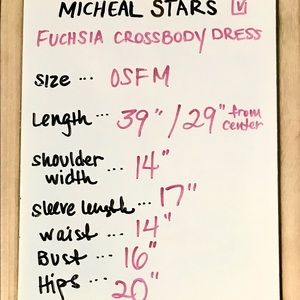 MICHEAL STARS
FUCHSIA CROSSBODY DRESS
SIZE ... OSFM
Length ... 39" / 29" from center
shoulder width ... 14"
sleeve length ... 17"
waist ... 14"
Bust ... 16"
Hips ... 20"